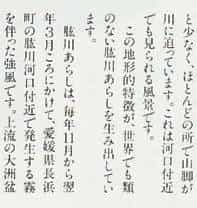 と少なく、ほとんどの所で山脚が
川に迫っています。これは河口付近
でも見られる風景です。
この地形的特徴が、世界でも類
のない肱川あらしを生み出してい
ます。
肱川あらしは、毎年11月から翌
年3月ころにかけて、愛媛県長浜
町の肱川河口付近で発生する霧
を伴った強風です。上流の大洲盆